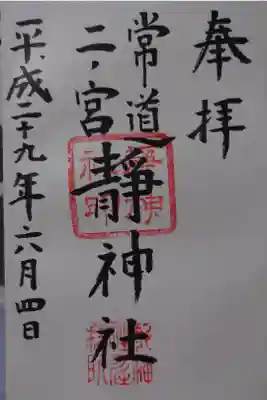 奉拝
常道二ノ宮
靜神社
平成二十九年六月四日